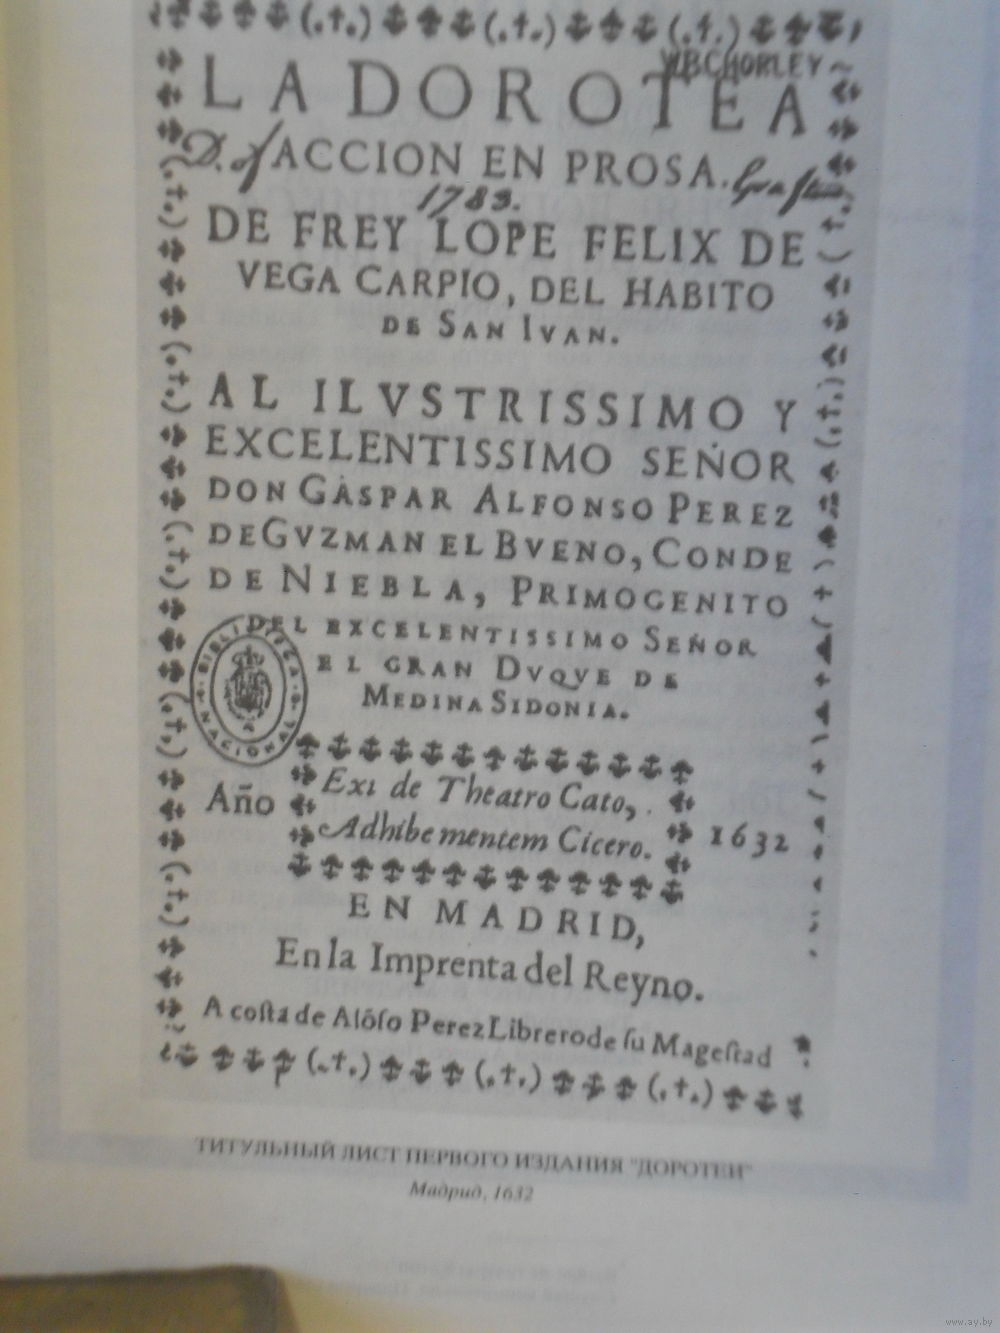 W.B.CHORLEY
LA DOROTEA
ACCION EN PROSA.
1783.
DE FREY LOPE FELIX DE
VEGA CARPIO, DEL HABITO
DE SAN IVAN.
AL ILVSTRISSIMO Y
EXCELENTISSIMO SEÑOR
DON GASPAR ALFONSO PEREZ
DE GVZMAN EL BVENO, CONDE
DE NIEBLA, PRIMOGENITO
DEL EXCELENTISSIMO SEÑOR
EL GRAN DVQVE DE
MEDINA SIDONIA.
BIBLIOTECA NACIONAL
Exi de Theatro Cato,
Año Adhibe mentem Cicero. 1632
EN MADRID,
En la Imprenta del Reyno.
A costa de Alõso Perez Librero de su Magestad
ТИТУЛЬНЫЙ ЛИСТ ПЕРВОГО ИЗДАНИЯ "ДОРОТЕИ"
Мадрид, 1632
www.ay.by